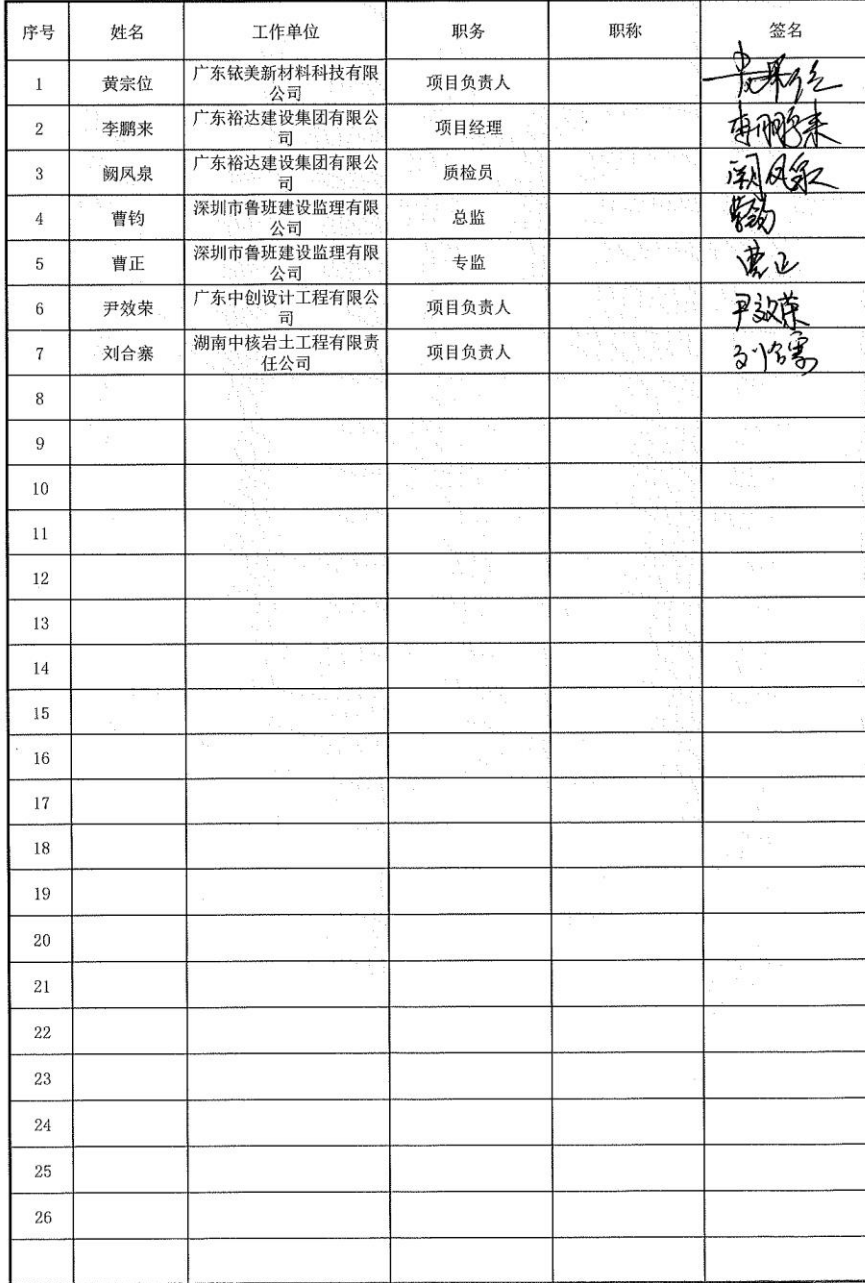 序号 姓名 工作单位 职务 职称 签名
1 黄宗位 广东铱美新材料科技有限 项目负责人
公司
2 李鹏来 广东裕达建设集团有限公 项目经理 李鹏来
司
3 阙凤泉 广东裕达建设集团有限公 质检员 阙凤泉
司
4 曹钧 深圳市鲁班建设监理有限 总监 曹钧
公司
5 曹正 深圳市鲁班建设监理有限 专监 曹正
公司
6 尹效荣 广东中创设计工程有限公 项目负责人 尹效荣
司
7 刘合寨 湖南中核岩土工程有限责 项目负责人 刘合寨
任公司
8
9
10
11
12
13
14
15
16
17
18
19
20
21
22
23
24
25
26